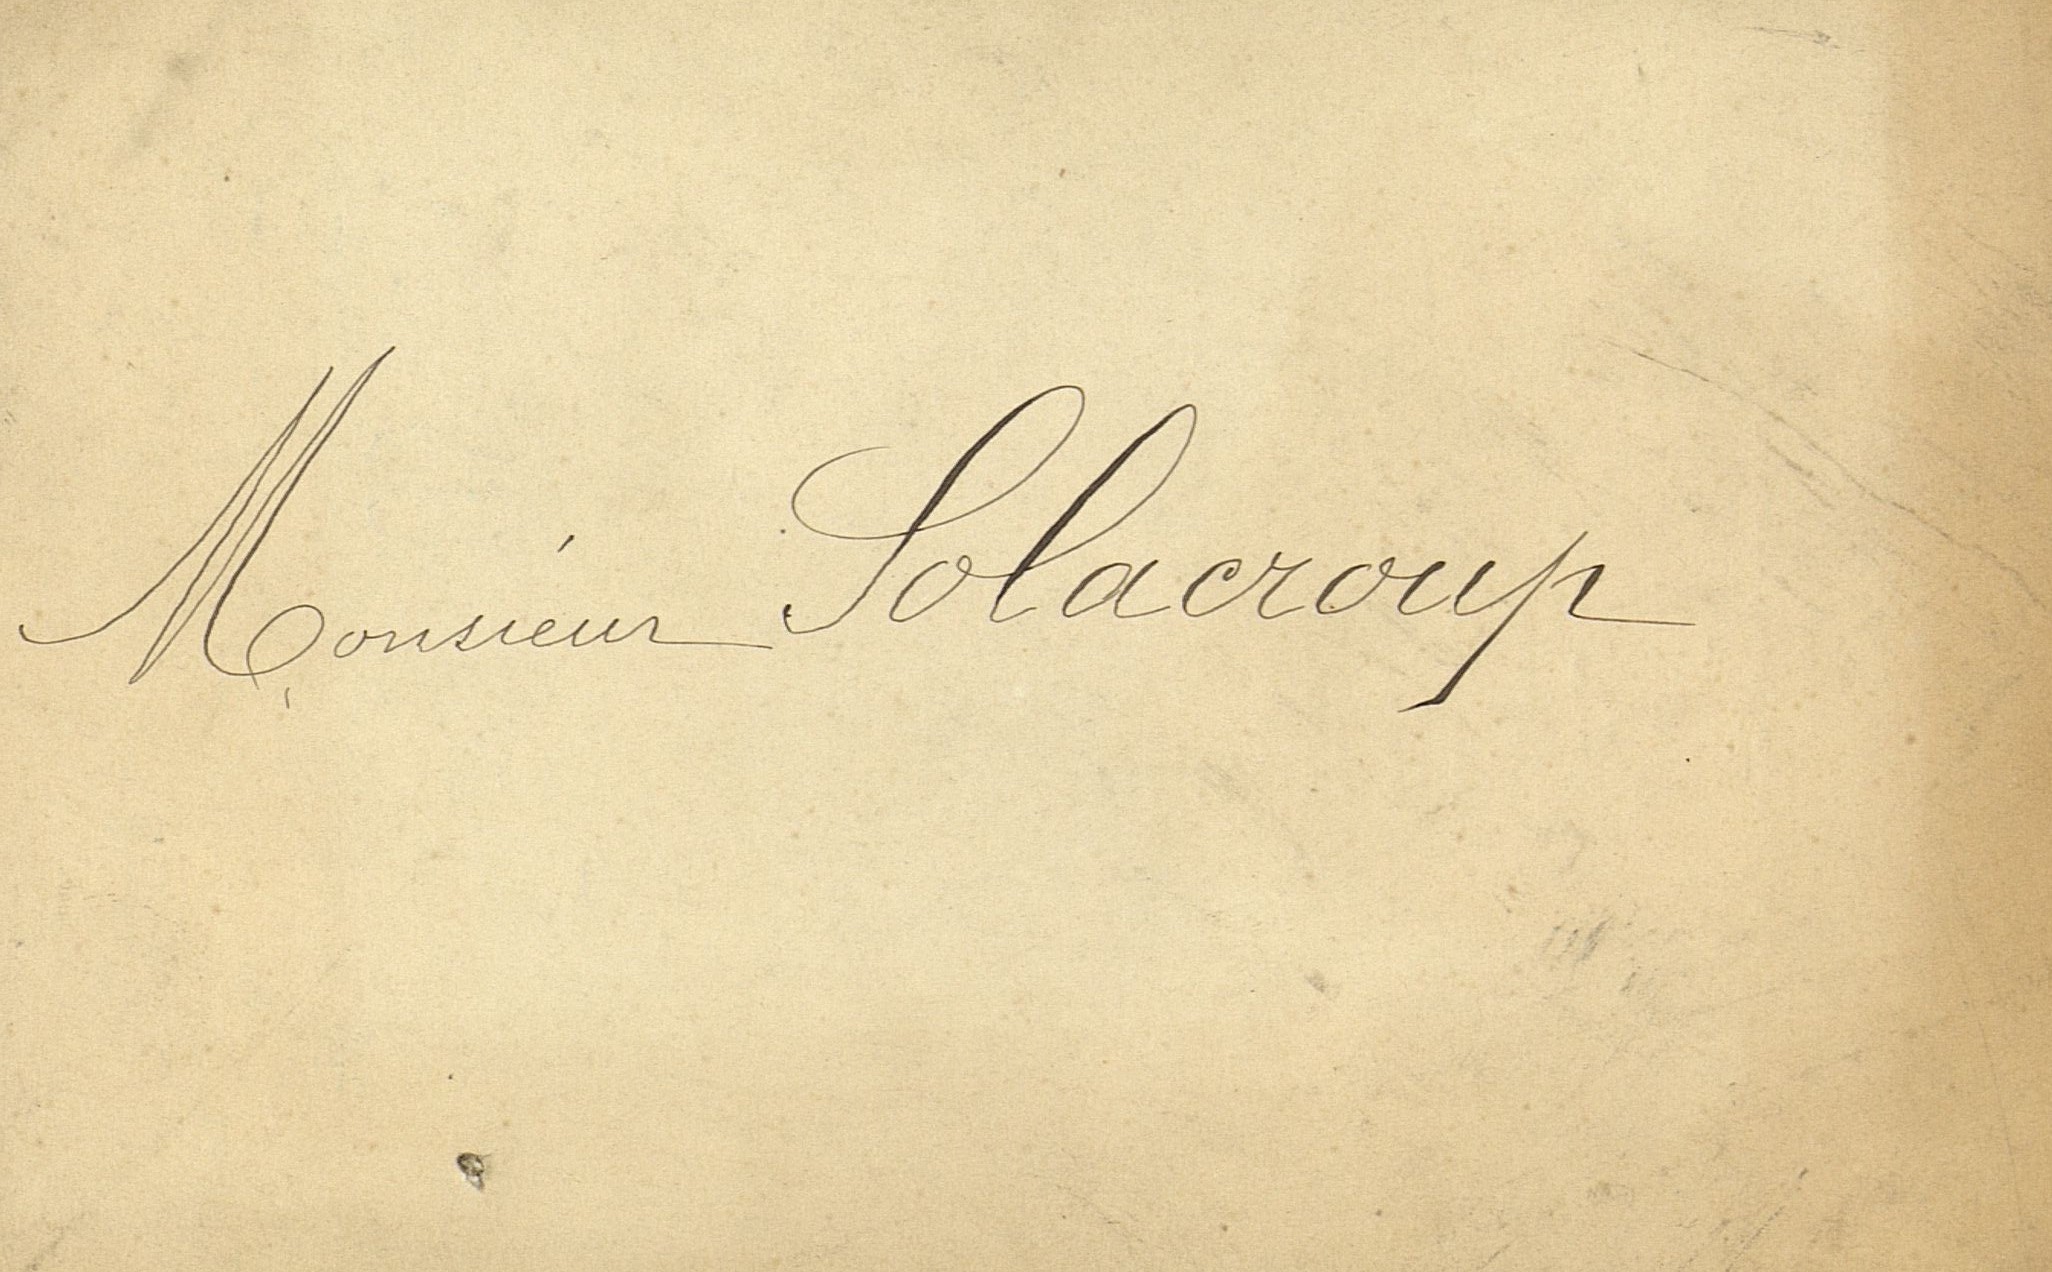 Monsieur Solacroup